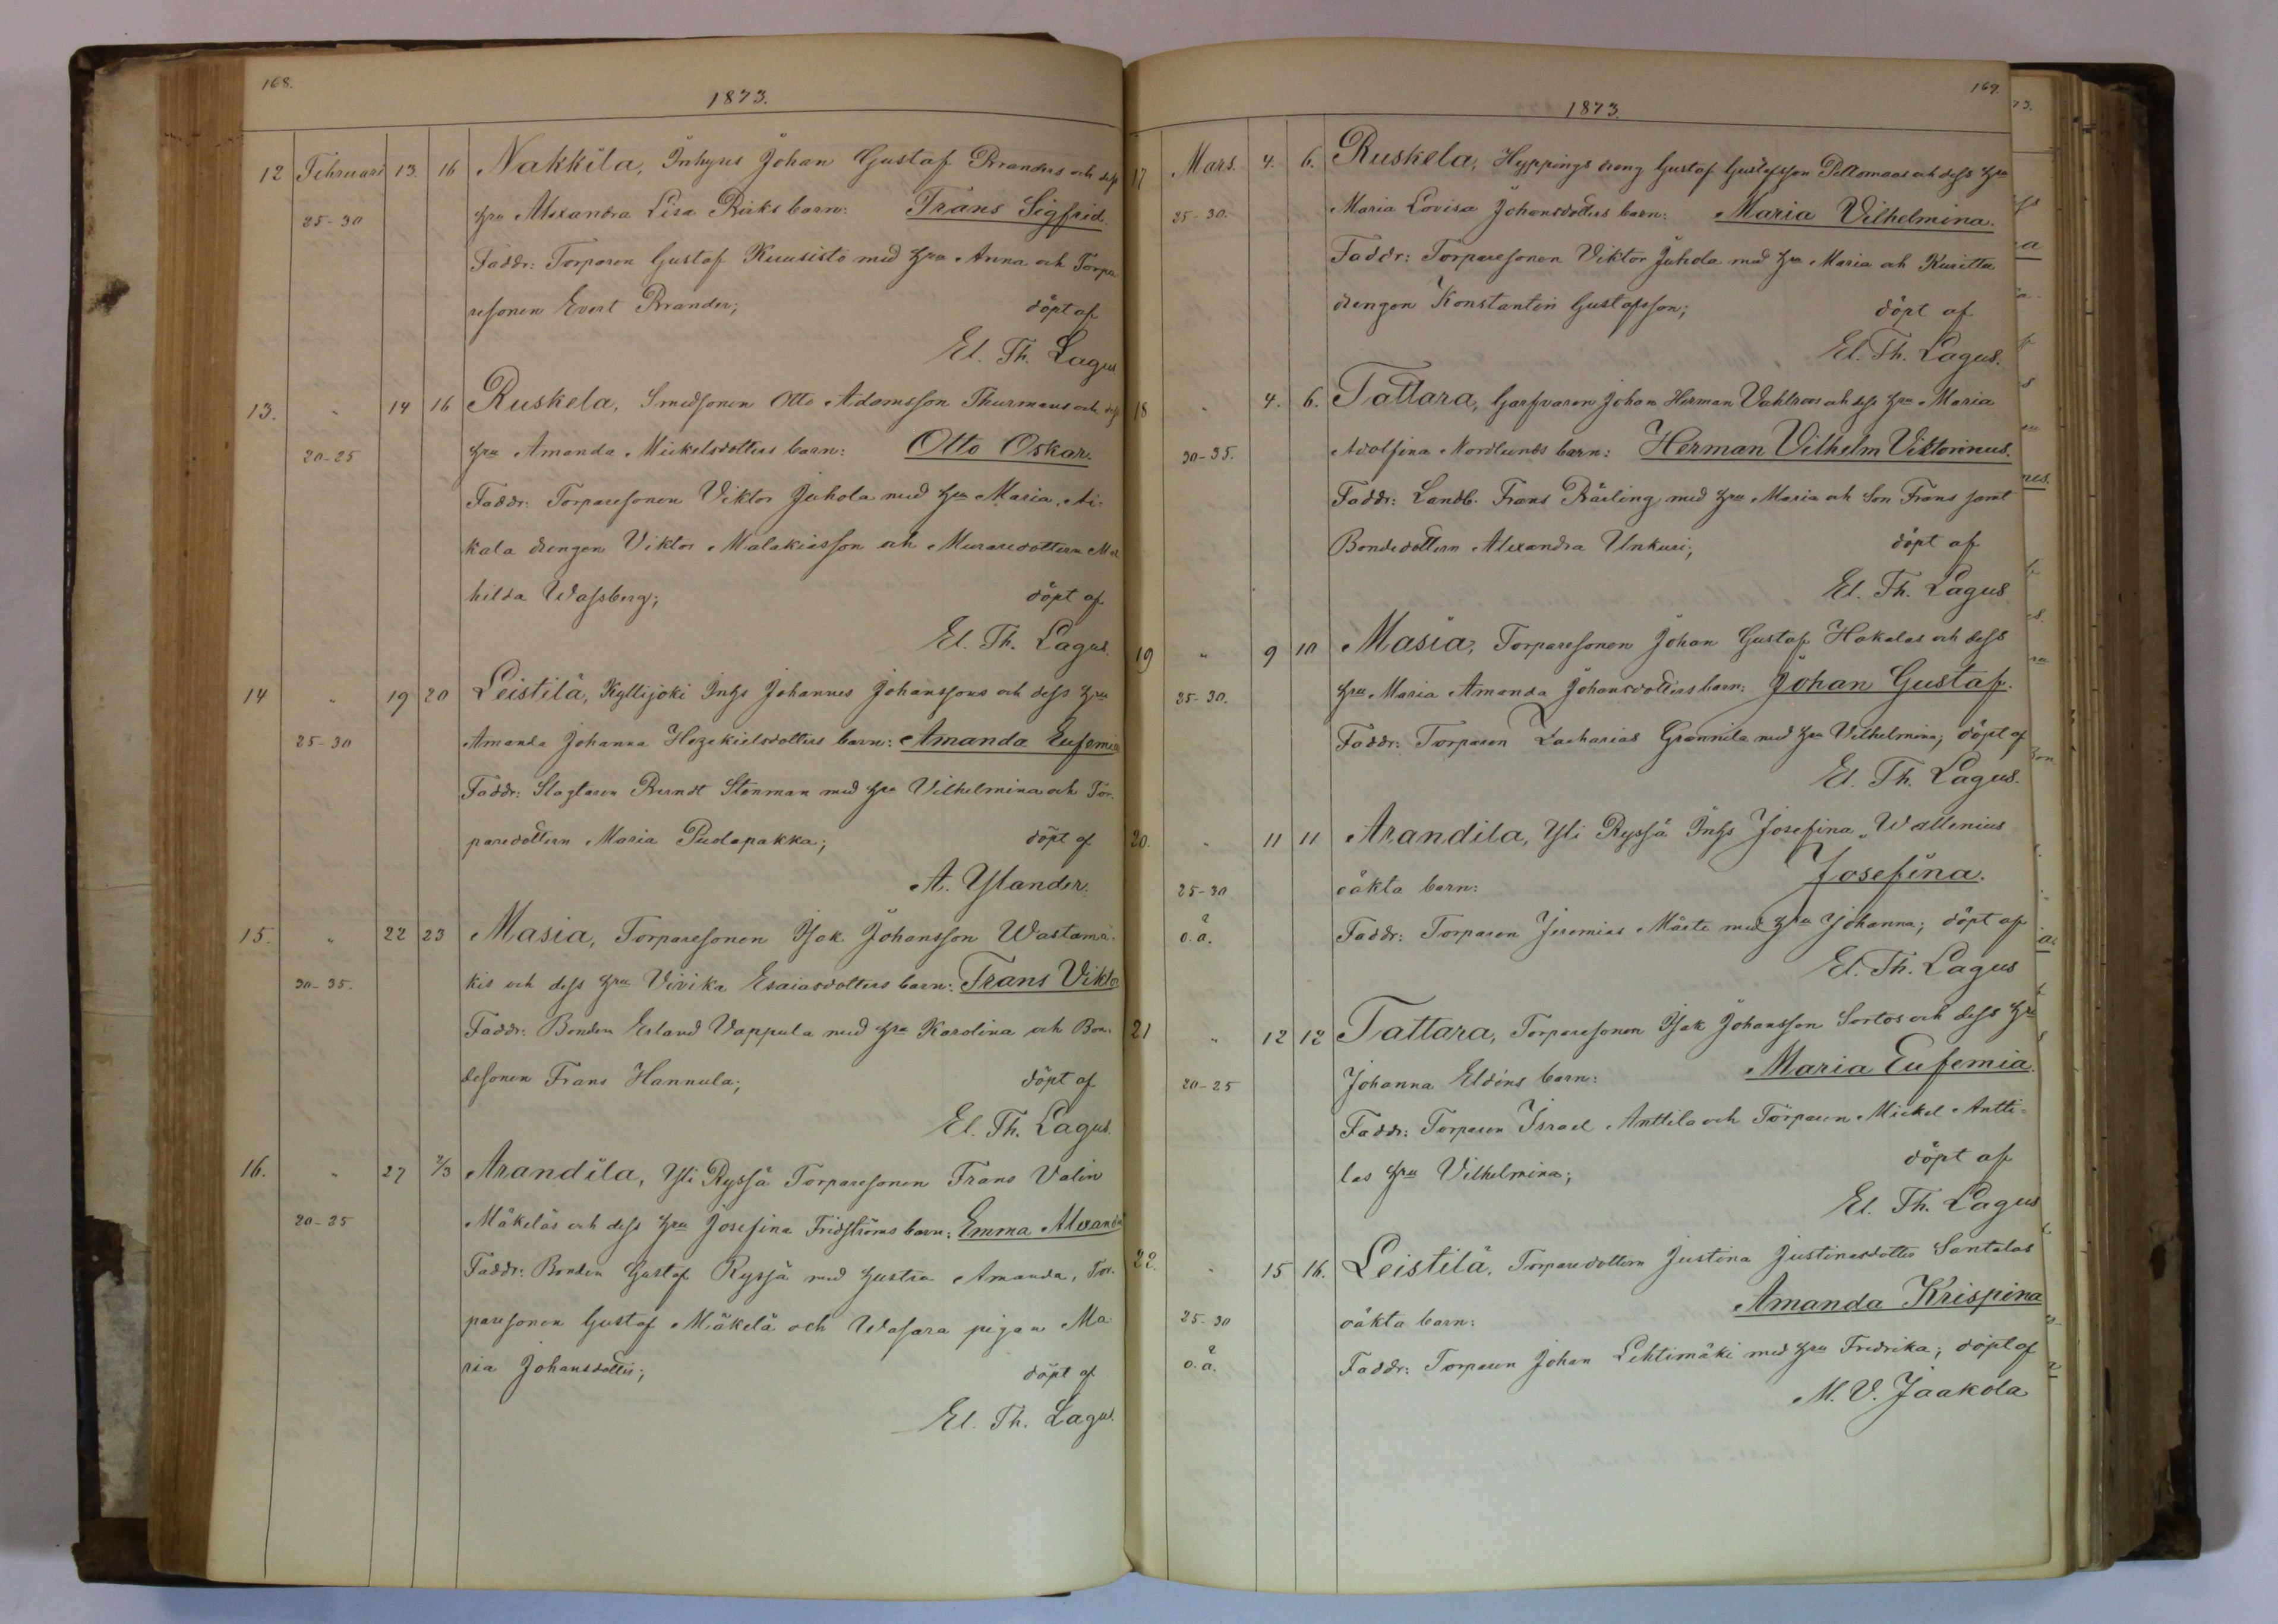 168.
1873.
12 Februari 13. 16 Nakkila, Inhyses Johan Gustaf Branders och dess
25-30 hru Alexandra Lisa Rirks barn: Frans Sigfrid.
Faddr: Torparen Gustaf Kuusisto med hru Anna och Torpa
resonen Evert Brander; döpt af
El. Th. Lagus
13. " 14 16 Ruskela, Smedsonen Otto Adamsson Thurmans och dess
20-25 hru Amanda Mickelsdotters barn: Otto Oskar.
Faddr: Torparesonen Viktor Juhola med hru Maria, Ai-
kala drengen Viktor Malakiasson och Muraredottern Mat
hilda Wassberg; döpt af
El. Th. Lagus.
14 " 19 20 Leistilä, Kyllijoki Inhs Johannes Johanssons och dess hru
25-30 Amanda Johanna Hezekielsdotters barn: Amanda Eufemia
Faddr: Slagtaren Berndt Stenman med hru Vilhelmina och Tor-
paredottern Maria Puolapakka; döpt af
A. Ylander.
15. " 22 23 Masia, Torparesonen Isak Johansson Wastamä-
30-35. kis och dess hru Vivika Esaiasdotters barn: Frans Vikto
Faddr: Bonden Erland Vappula med hru Karolina och Bon-
desonen Frans Hannula; döpt af
El. Th. Lagus.
16. " 27 2/3 Arandila, Yli Ryssä Torparesonen Frans Valin
20-25 Mäkeläs och dess hru Josefina Fridströms barn: Emma Alexandra
Faddr: Bonden Gustaf Ryssä med hustru Amanda, Tor-
paresonen Gustaf Mäkelä och Wasara pigan Ma-
ria Johansdotter; döpt af
El. Th. Lagus.
169.
1873
17 Mars. 4. 6. Ruskela, Hyppings dreng Gustaf Gustafsson Peltomaas och dess hru
25-30. Maria Lovisa Johansdotters barn: Maria Vilhelmina.
Faddr: Torparesonen Viktor Juhola med hru Maria och Kuritta
drengen Konstantin Gustafsson; döpt af
El. Th. Lagus.
18 " 4. 6. Tattara, Garfvaren Johan Herman Vahlroos och dess hru Maria
30-35. Adolfina Nordlunds barn: Herman Vilhelm Viktorinus.
Faddr: Landb. Frans Bärling med hru Maria och Son Frans samt
Bondedottern Alexandra Unkuri; döpt af
El. Th. Lagus
19 " 9 10 Masia, Torparesonen Johan Gustaf Hakalas och dess
25-30. hru Maria Amanda Johansdotters barn: Johan Gustaf.
Faddr: Torparen Zacharias Grannila med hru Vilhelmina; döpt af
El. Th. Lagus.
20. " 11 11 Arandila, Yli Ryssä Inhs Josefina Wallenius
25-30 oäkta barn: Josefina.
o.ä. Faddr: Torparen Jeremias Märte med hru Johanna; döpt af
El. Th. Lagus
21 " 12 12 Tattara, Torparesonen Isak Johansson Sortos och dess hru
20-25 Johanna Eldéns barn: Maria Eufemia.
Faddr: Torparen Israel Anttila och Torparen Mickel Antti-
las hru Vilhelmina; döpt af
El. Th. Lagus
22. " 15 16. Leistilä, Torparedottern Justina Justinasdotter Santalas
25-30 oäkta barn: Amanda Krispina
o.ä. Faddr: Torparen Johan Lehtimäki med hru Fredrika; döpt af
M. V. Jaakola